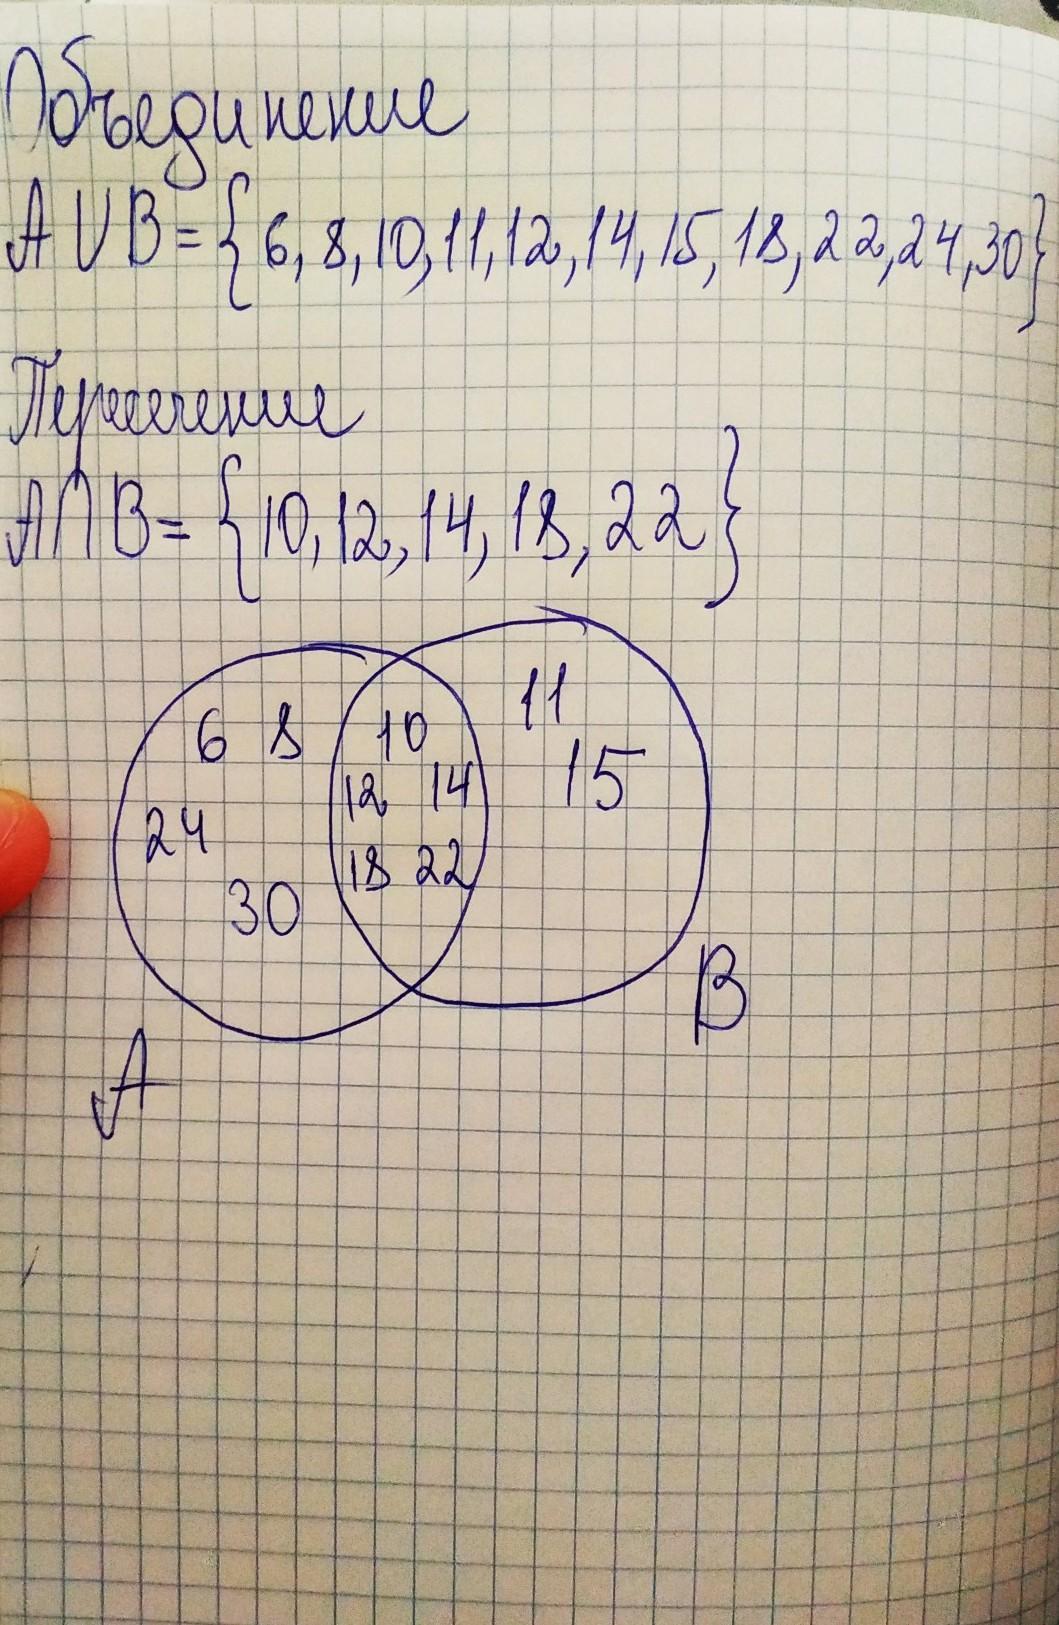 Объединение
A U B = {6, 8, 10, 11, 12, 14, 15, 18, 22, 24, 30}
Пересечение
A ∩ B = {10, 12, 14, 18, 22}
11
6 8 10
15
12 14
24
18 22
30
B
A